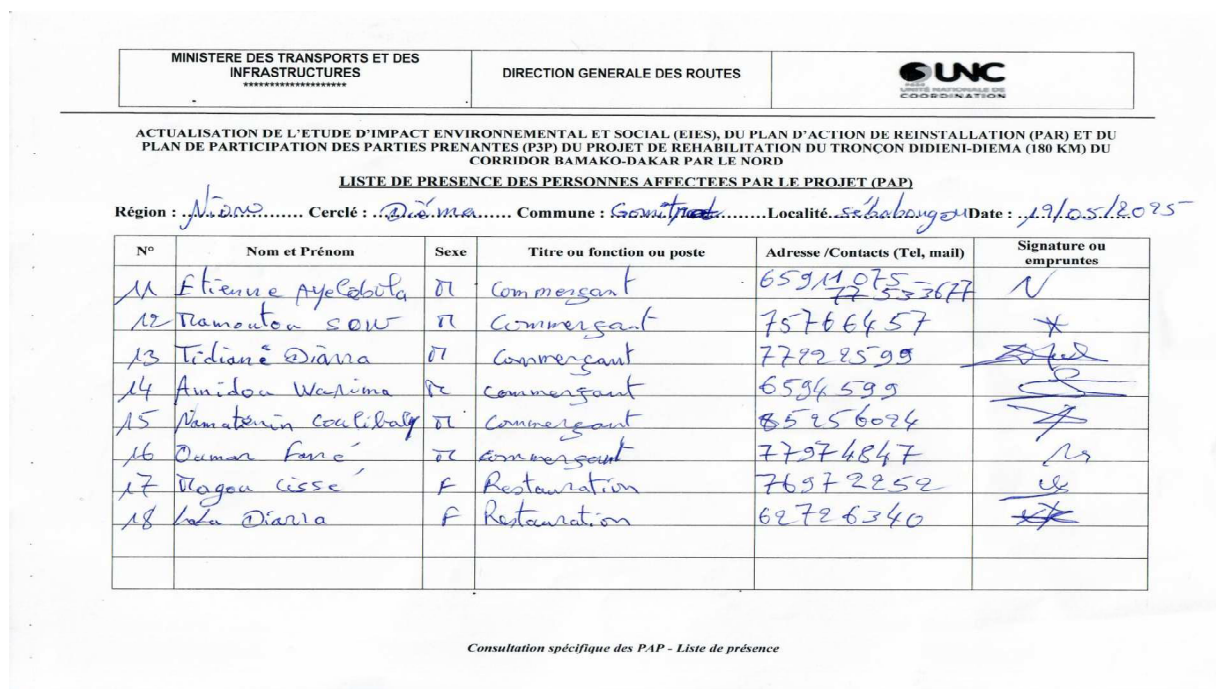 MINISTERE DES TRANSPORTS ET DES
INFRASTRUCTURES
********************
DIRECTION GENERALE DES ROUTES
UNC
UNITÉ NATIONALE DE
COORDINATION
ACTUALISATION DE L'ETUDE D'IMPACT ENVIRONNEMENTAL ET SOCIAL (EIES), DU PLAN D'ACTION DE REINSTALLATION (PAR) ET DU
PLAN DE PARTICIPATION DES PARTIES PRENANTES (P3P) DU PROJET DE REHABILITATION DU TRONÇON DIDIENI-DIEMA (180 KM) DU
CORRIDOR BAMAKO-DAKAR PAR LE NORD
LISTE DE PRESENCE DES PERSONNES AFFECTEES PAR LE PROJET (PAP)
Région : Nioro Cerclé : Diéma Commune : Localité Sébabougou Date : 19/05/2025
N° Nom et Prénom Sexe Titre ou fonction ou poste Adresse /Contacts (Tel, mail) Signature ou empruntes
11 Etienne M Commerçant 65911075 77533677
12 Mamoutou SOW M Commerçant 75766457
13 Tidiane Diarra M Commerçant 77292599
14 Amidou M Commerçant 6594599
15 Coulibaly M Commerçant 85256024
16 Oumar M Commerçant 77974847
17 Magou Cissé F Restauration 76972252
18 Diarra F Restauration 62726340
Consultation spécifique des PAP - Liste de présence